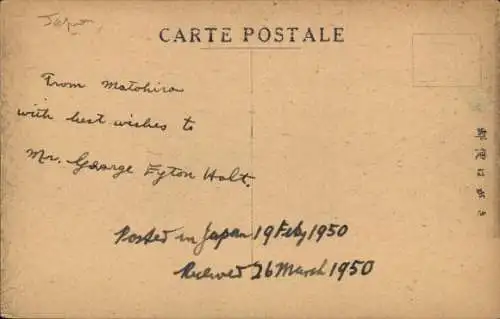 Japan
CARTE POSTALE
From Matohira
with best wishes to
Mr. George Eyton Holt.
Posted in Japan 19 Feby 1950
Recieved 26 March 1950
郵便はがき